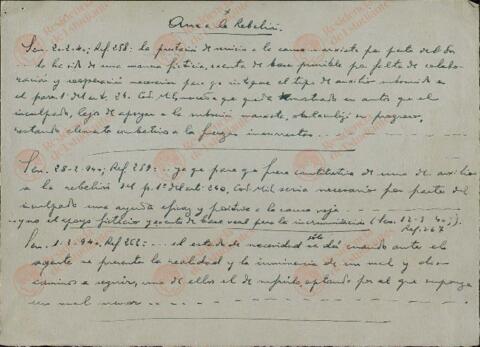 a la Rebelión.
Sen. 2-2-40; Ref 258: la prestación de servicio a la causa marxista por parte del
ha sido de una manera ficticia, exenta de base punible por falta de colabo-
ración y cooperación necesaria para que integre el tipo de auxilio
el párrafo 1º del art. 240 Cod. Mil, que queda demostrado en autos que el
inculpado, lejos de apoyar a la subversión marxista, obstaculizó su progreso,
restando elementos combativos a la fuerza
Sen. 28-2-940; Ref. 259: ... ya que para que fuera constitutivo de uno de auxilio
a la rebelión del p. 1º del art. 240, Cod. Mil sería necesario por parte del
inculpado una ayuda eficaz y positiva a la causa roja
y no el apoyo ficticio y exento de base real para la incriminación (Sen. 12-3-40);
Ref. 267
Sen. 1-3-940. Ref 262: ... el estado de necesidad es sólo cuando ante el
agente se presenta la realidad y la inminencia de un mal y dos
caminos a seguir, uno de ellos el de optando por el que suponga
un mal menor